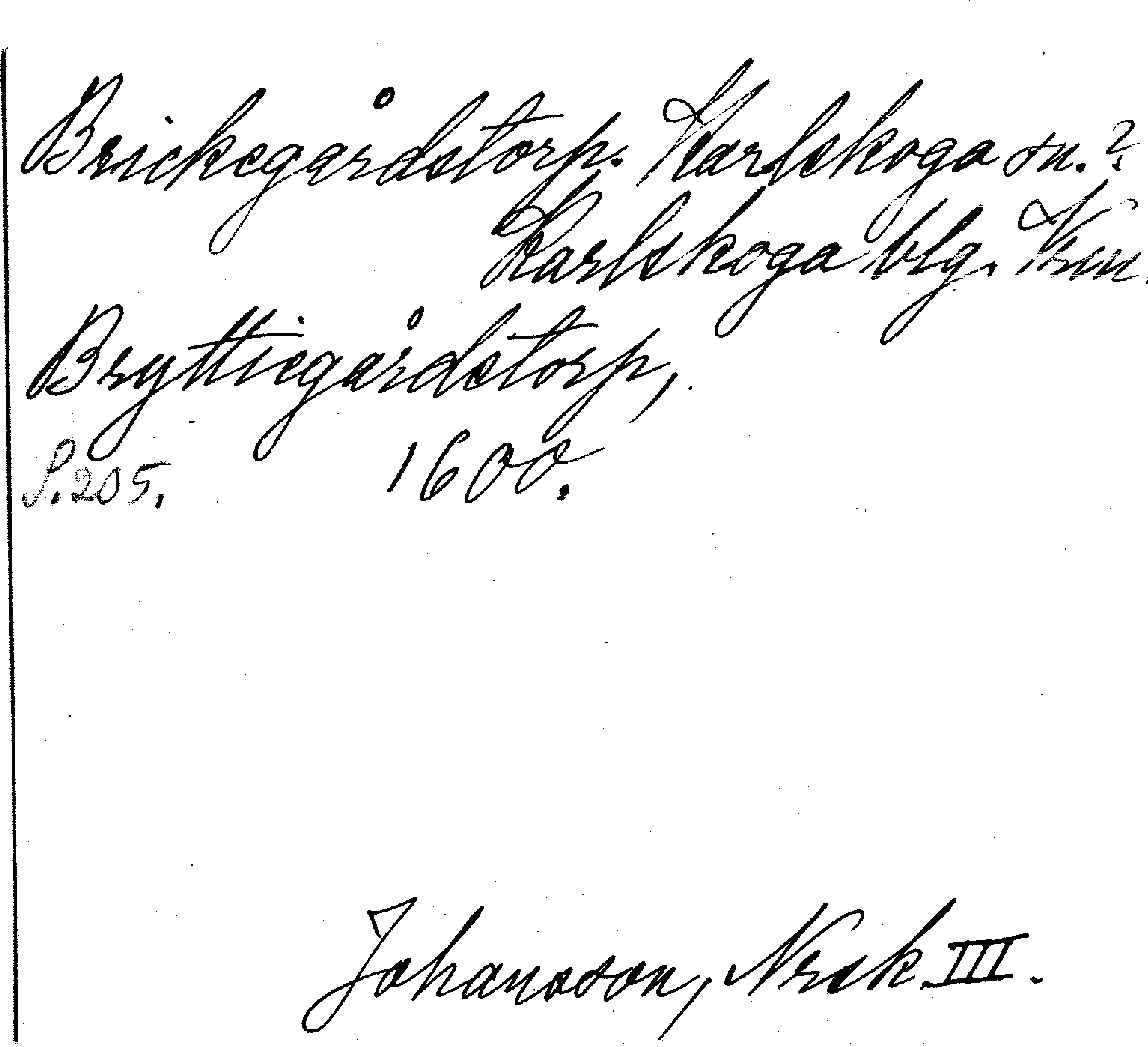 Brickegårdstorp. Karlskoga sn.?
Karlskoga blg. Vrm.
Bryttiegårdstorp,
S. 205. 1600.
Johansson, Nrsk. III.